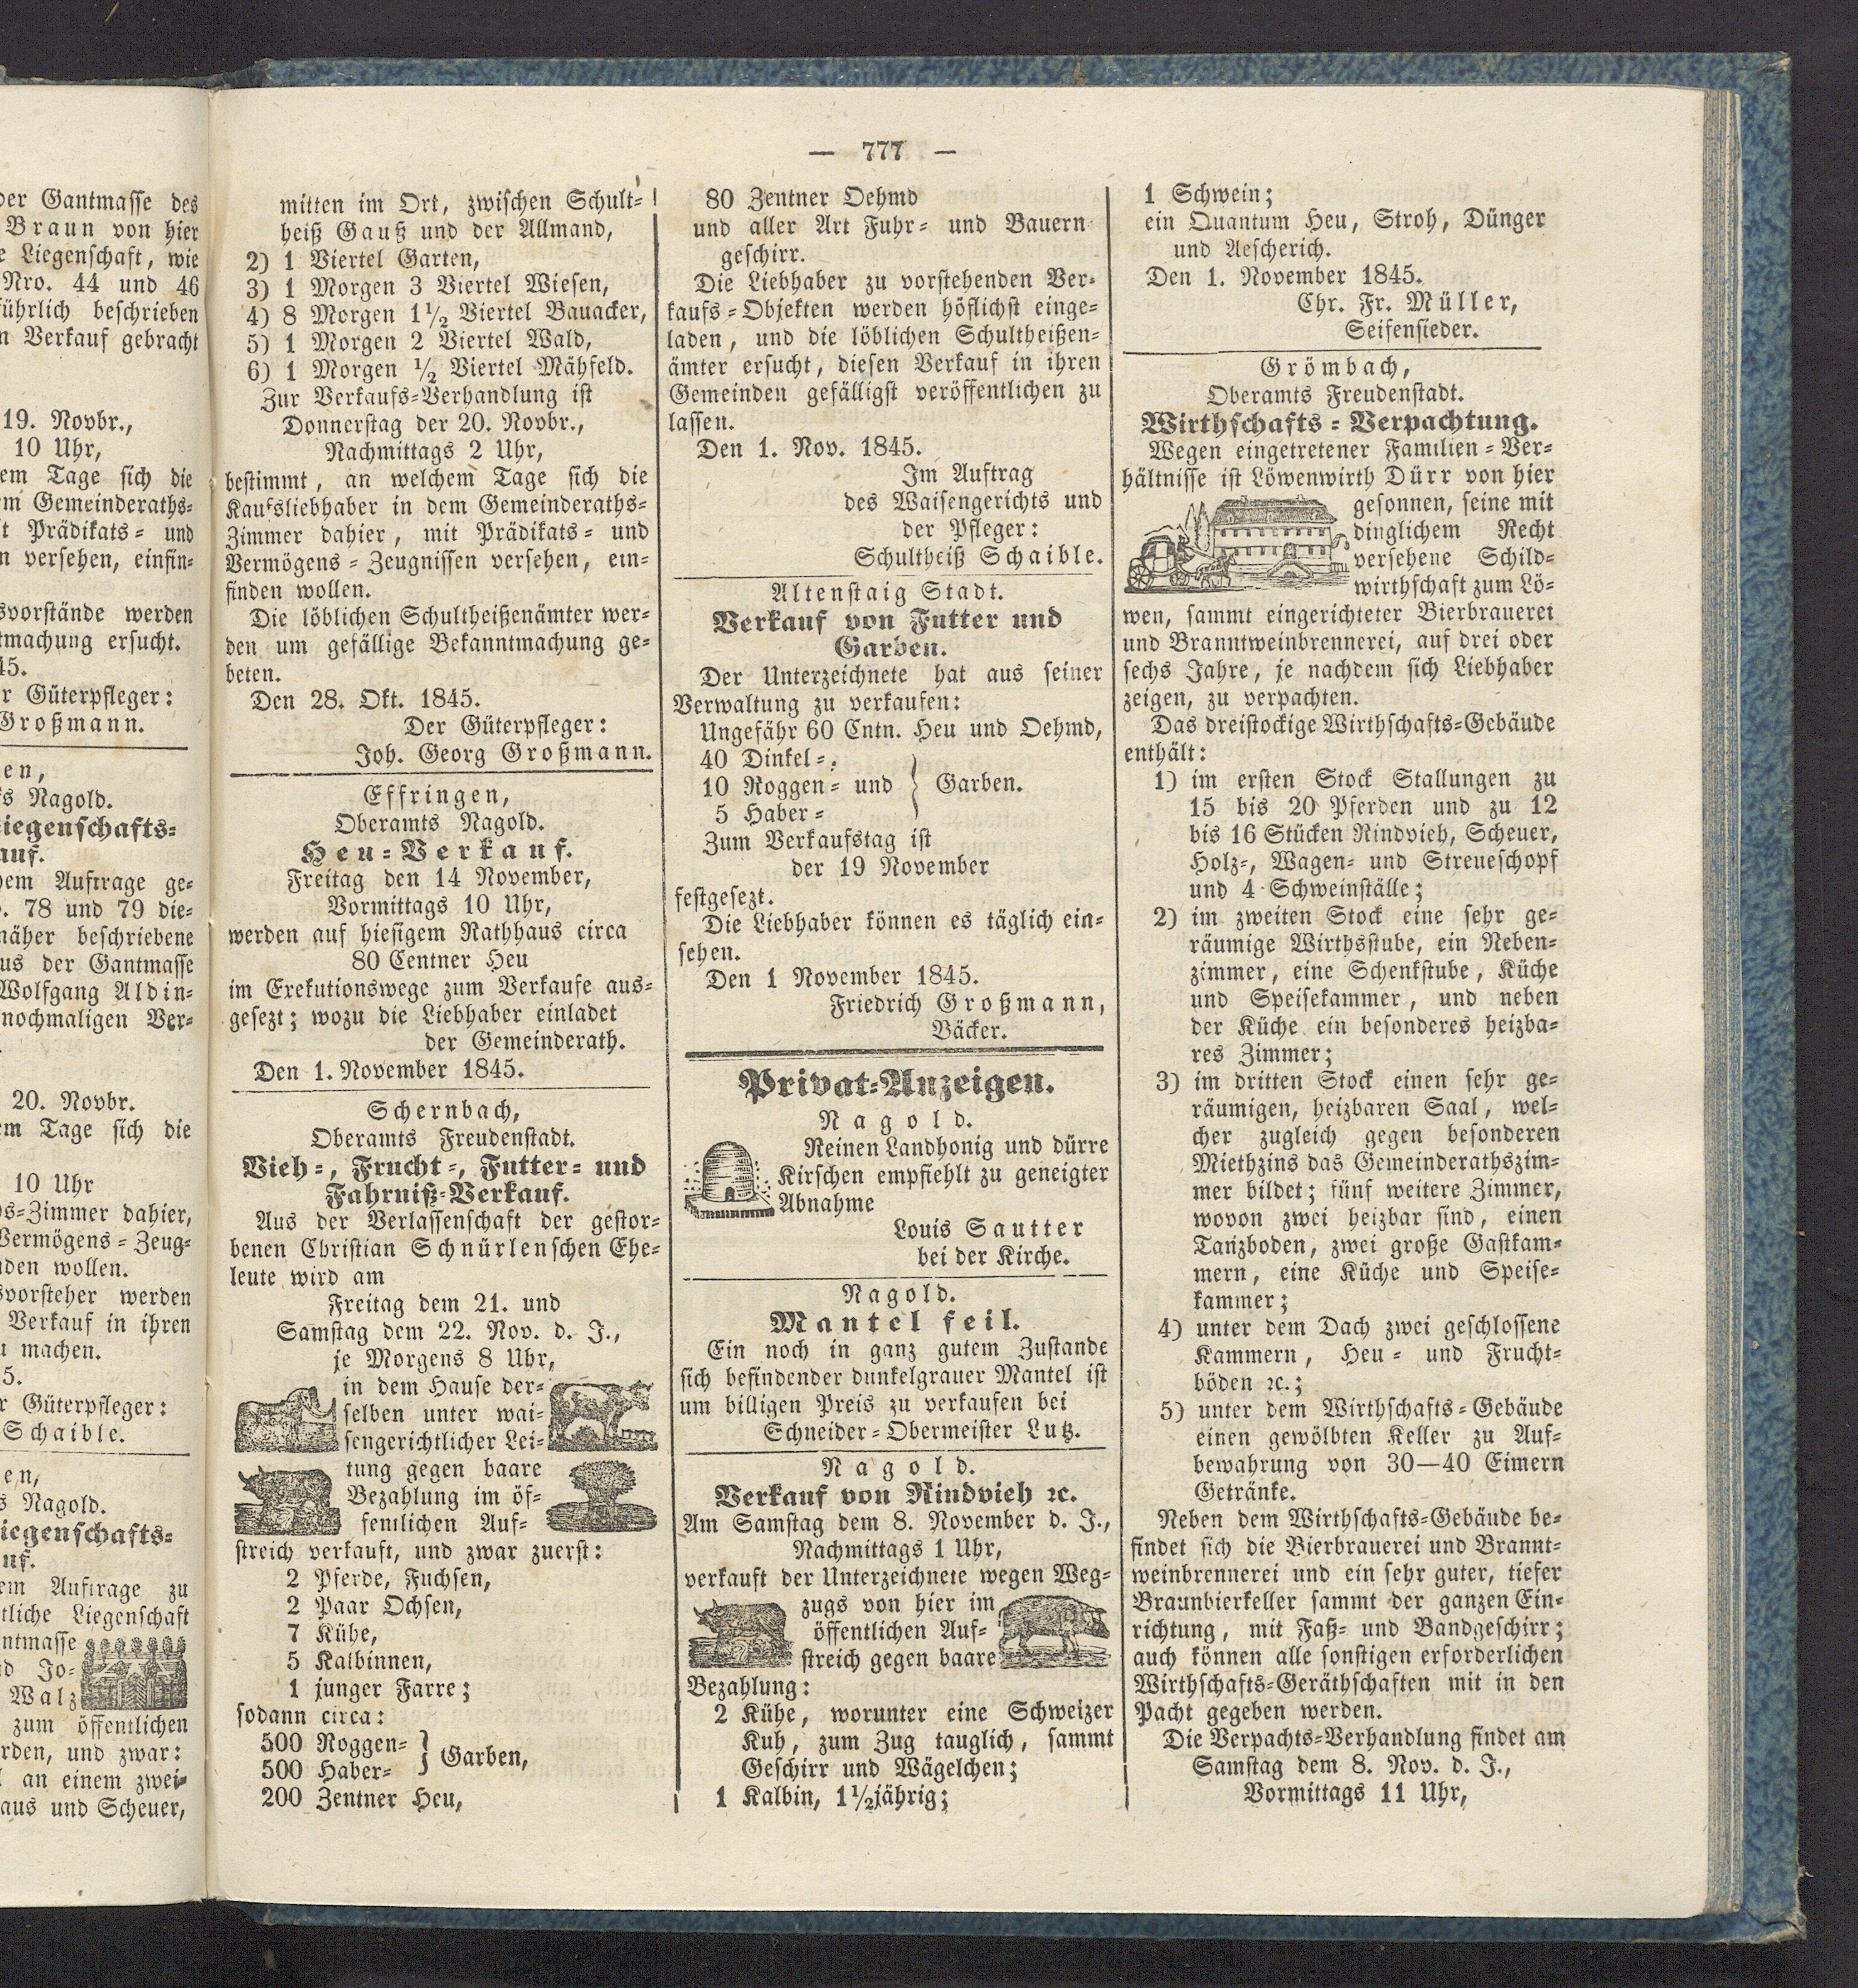 der Gantmasse des
Braun von hier
e Liegenschaft, wie
Nro. 44 und 46
führlich beschrieben
n Verkauf gebracht
19. Novbr.,
10 Uhr,
em Tage sich die
em Gemeinderaths-
it Prädikats- und
n versehen, einfin-
svorstände werden
tmachung ersucht.
45.
r Güterpfleger:
Großmann.
en,
s Nagold.
iegenschafts-
auf.
dem Auftrage ge-
. 78 und 79 die-
näher beschriebene
us der Gantmasse
Wolfgang Aldin-
nochmaligen Ver-
20. Novbr.
em Tage sich die
10 Uhr
s-Zimmer dahier,
Vermögens-Zeug-
nden wollen.
svorsteher werden
Verkauf in ihren
u machen.
5.
r Güterpfleger:
Schaible.
en,
s Nagold.
iegenschafts-
uf.
em Auftrage zu
tliche Liegenschaft
ntmasse
d Jo-
Walz
zum öffentlichen
rden, und zwar:
an einem zwei-
aus und Scheuer,
— 777 —
mitten im Ort, zwischen Schult-
heiß Gauß und der Allmand,
2) 1 Viertel Garten,
3) 1 Morgen 3 Viertel Wiesen,
4) 8 Morgen 1½ Viertel Bauacker,
5) 1 Morgen 2 Viertel Wald,
6) 1 Morgen ½ Viertel Mähfeld.
Zur Verkaufs-Verhandlung ist
Donnerstag der 20. Novbr.,
Nachmittags 2 Uhr,
bestimmt, an welchem Tage sich die
Kaufsliebhaber in dem Gemeinderaths-
Zimmer dahier, mit Prädikats- und
Vermögens-Zeugnissen versehen, ein-
finden wollen.
Die löblichen Schultheißenämter wer-
den um gefällige Bekanntmachung ge-
beten.
Den 28. Okt. 1845.
Der Güterpfleger:
Joh. Georg Großmann.
Effringen,
Oberamts Nagold.
Heu-Verkauf.
Freitag den 14 November,
Vormittags 10 Uhr,
werden auf hiesigem Rathhaus circa
80 Centner Heu
im Exekutionswege zum Verkaufe aus-
gesezt; wozu die Liebhaber einladet
der Gemeinderath.
Den 1. November 1845.
Schernbach,
Oberamts Freudenstadt.
Vieh-, Frucht-, Futter- und
Fahrniß-Verkauf.
Aus der Verlassenschaft der gestor-
benen Christian Schnürlenschen Ehe-
leute wird am
Freitag dem 21. und
Samstag dem 22. Nov. d. J.,
je Morgens 8 Uhr,
in dem Hause der-
selben unter wai-
sengerichtlicher Lei-
tung gegen baare
Bezahlung im öf-
fentlichen Auf-
streich verkauft, und zwar zuerst:
2 Pferde, Fuchsen,
2 Paar Ochsen,
7 Kühe,
5 Kalbinnen,
1 junger Farre;
sodann circa:
500 Roggen- } Garben,
500 Haber-
200 Zentner Heu,
80 Zentner Oehmd
und aller Art Fuhr- und Bauern
geschirr.
Die Liebhaber zu vorstehenden Ver-
kaufs-Objekten werden höflichst einge-
laden, und die löblichen Schultheißen-
ämter ersucht, diesen Verkauf in ihren
Gemeinden gefälligst veröffentlichen zu
lassen.
Den 1. Nov. 1845.
Im Auftrag
des Waisengerichts und
der Pfleger:
Schultheiß Schaible.
Altenstaig Stadt.
Verkauf von Futter und
Garben.
Der Unterzeichnete hat aus seiner
Verwaltung zu verkaufen:
Ungefähr 60 Cntn. Heu und Oehmd,
40 Dinkel-,
10 Roggen- und } Garben.
5 Haber-
Zum Verkaufstag ist
der 19 November
festgesezt.
Die Liebhaber können es täglich ein-
sehen.
Den 1 November 1845.
Friedrich Großmann,
Bäcker.
Privat-Anzeigen.
Nagold.
Reinen Landhonig und dürre
Kirschen empfiehlt zu geneigter
Abnahme
Louis Sautter
bei der Kirche.
Nagold.
Mantel feil.
Ein noch in ganz gutem Zustande
sich befindender dunkelgrauer Mantel ist
um billigen Preis zu verkaufen bei
Schneider-Obermeister Lutz.
Nagold.
Verkauf von Rindvieh ꝛc.
Am Samstag dem 8. November d. J.,
Nachmittags 1 Uhr,
verkauft der Unterzeichnete wegen Weg-
zugs von hier im
öffentlichen Auf-
streich gegen baare
Bezahlung:
2 Kühe, worunter eine Schweizer
Kuh, zum Zug tauglich, sammt
Geschirr und Wägelchen;
1 Kalbin, 1½jährig;
1 Schwein;
ein Quantum Heu, Stroh, Dünger
und Aescherich.
Den 1. November 1845.
Chr. Fr. Müller,
Seifensieder.
Grömbach,
Oberamts Freudenstadt.
Wirthschafts-Verpachtung.
Wegen eingetretener Familien-Ver-
hältnisse ist Löwenwirth Dürr von hier
gesonnen, seine mit
dinglichem Recht
versehene Schild-
wirthschaft zum Lö-
wen, sammt eingerichteter Bierbrauerei
und Branntweinbrennerei, auf drei oder
sechs Jahre, je nachdem sich Liebhaber
zeigen, zu verpachten.
Das dreistockige Wirthschafts-Gebäude
enthält:
1) im ersten Stock Stallungen zu
15 bis 20 Pferden und zu 12
bis 16 Stücken Rindvieh, Scheuer,
Holz-, Wagen- und Streueschopf
und 4 Schweinställe;
2) im zweiten Stock eine sehr ge-
räumige Wirthsstube, ein Neben-
zimmer, eine Schenkstube, Küche
und Speisekammer, und neben
der Küche ein besonderes heizba-
res Zimmer;
3) im dritten Stock einen sehr ge-
räumigen, heizbaren Saal, wel-
cher zugleich gegen besonderen
Miethzins das Gemeinderathszim-
mer bildet; fünf weitere Zimmer,
wovon zwei heizbar sind, einen
Tanzboden, zwei große Gastkam-
mern, eine Küche und Speise-
kammer;
4) unter dem Dach zwei geschlossene
Kammern, Heu- und Frucht-
böden ꝛc.;
5) unter dem Wirthschafts-Gebäude
einen gewölbten Keller zu Auf-
bewahrung von 30—40 Eimern
Getränke.
Neben dem Wirthschafts-Gebäude be-
findet sich die Bierbrauerei und Brannt-
weinbrennerei und ein sehr guter, tiefer
Braunbierkeller sammt der ganzen Ein-
richtung, mit Faß- und Bandgeschirr;
auch können alle sonstigen erforderlichen
Wirthschafts-Geräthschaften mit in den
Pacht gegeben werden.
Die Verpachts-Verhandlung findet am
Samstag dem 8. Nov. d. J.,
Vormittags 11 Uhr,